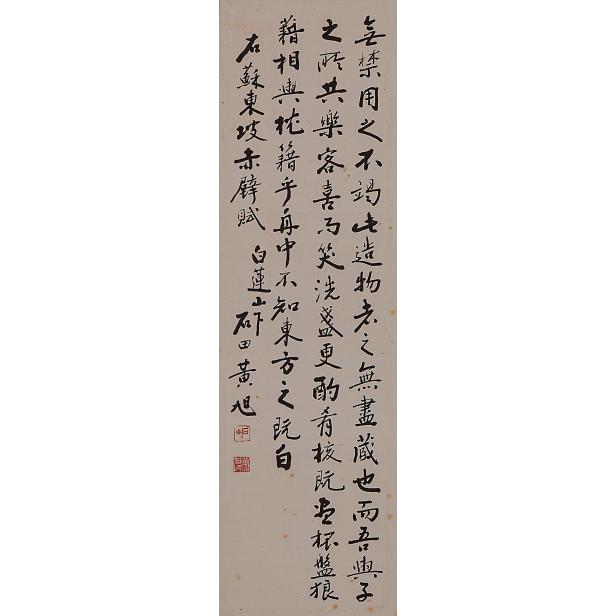 無禁用之不竭此造物者之無盡藏也而吾與子
之所共樂客喜而笑洗盞更酌肴核既盡杯盤狼
藉相與枕籍乎舟中不知東方之既白
右蘇東坡赤壁賦
白蓮山下石田黃旭